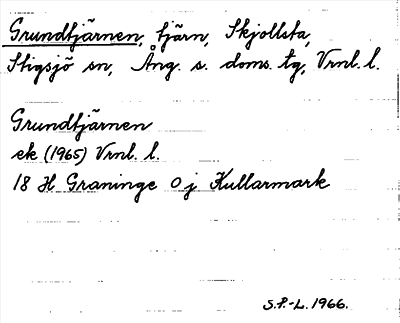 Grundtjärnen, tjärn, Skjollsta,
Stigsjö sn, Ång. s. doms. tg, Vrnl. l.
Grundtjärnen
ek (1965) Vrnl. l.
18 H Graninge 0 j Kullarmark
S.P.-L. 1966.